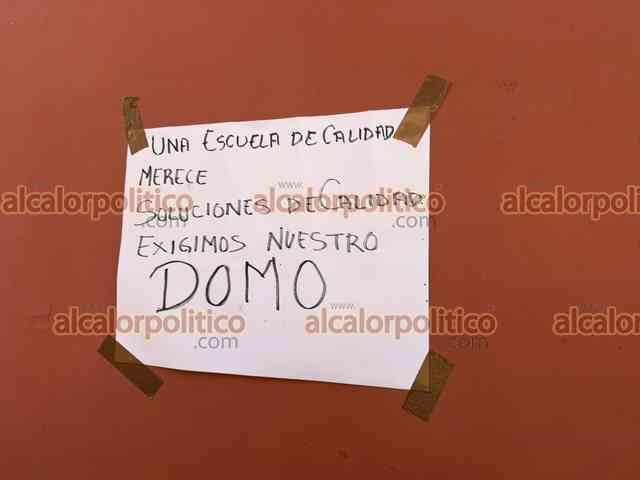 UNA ESCUELA DE CALIDAD
MERECE
SOLUCIONES DE CALIDAD
EXIGIMOS NUESTRO
DOMO
www.
alcalorpolitico
.com
www.
alcalorpolitico
.com
alcalorpolitico
alcalorpolitico
.com
www.
alcalorpolitico
.com
alcalorpolitico